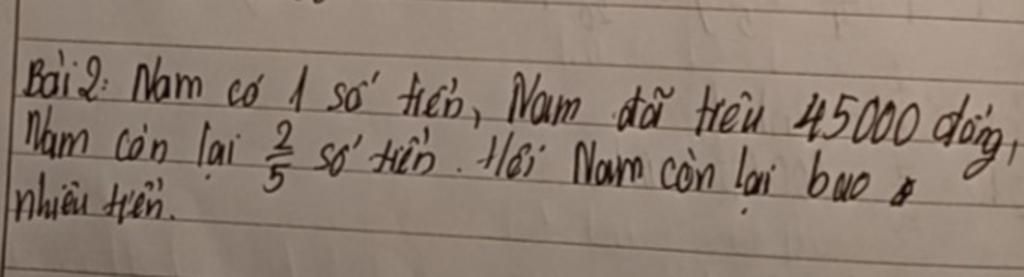 Bài 2: Nam có 1 số tiền, Nam đã tiêu 45000 đồng,
Nam còn lại 2/5 số tiền. Hỏi Nam còn lại bao
nhiêu tiền.